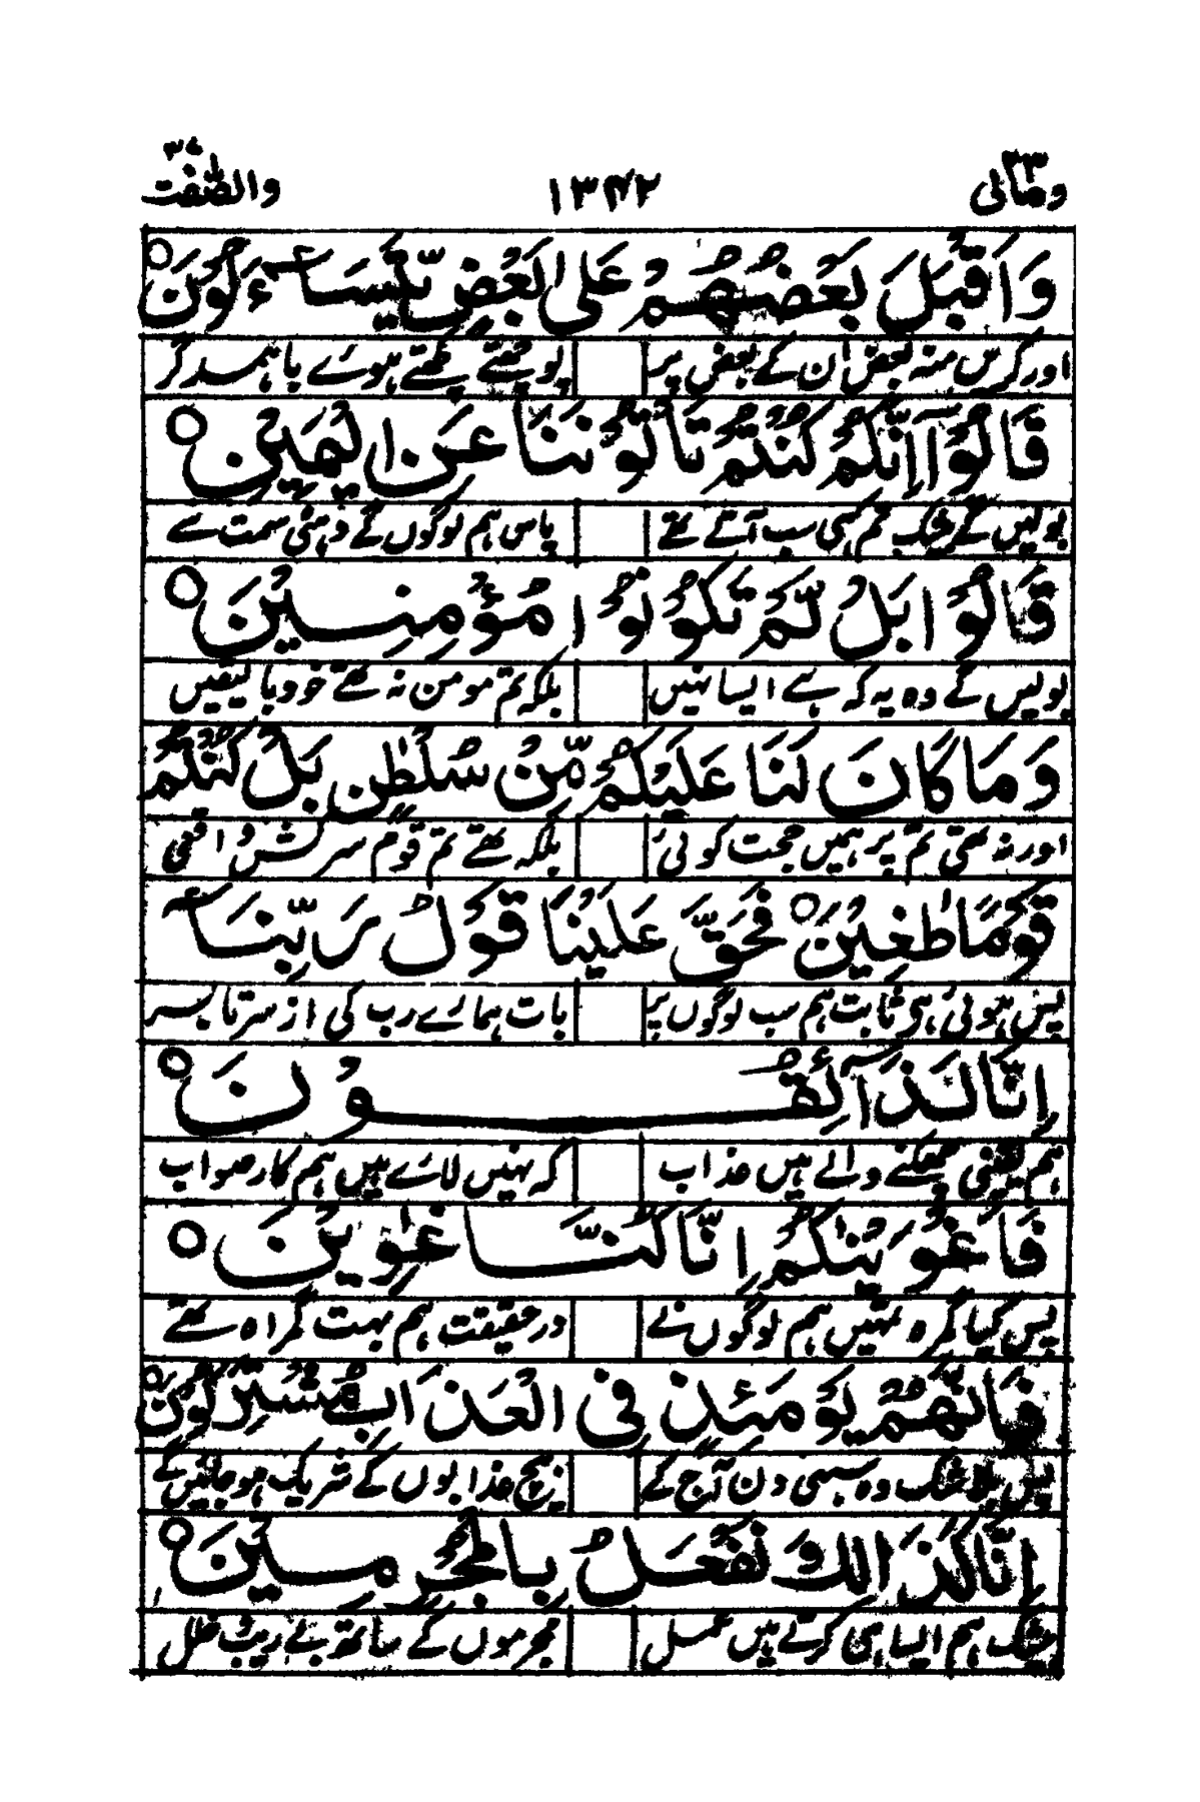 ومالی ۲۳ ۱۳۴۲ والصّٰفّٰت ۳۷
وَاَقْبَلَ بَعْضُهُمْ عَلٰى بَعْضٍ يَّتَسَآءَلُوْنَ ○
اور کریں منہ بعض ان کے بعض پر پوچھتے پھتے ہوئے با ہمدگر
قَالُوْٓا اِنَّكُمْ كُنْتُمْ تَاْتُوْنَنَا عَنِ الْيَمِيْنِ ○
بولیں گے بیشک تم ہی سب آتے تھے پاس ہم لوگوں کے دہنی سمت سے
قَالُوْا بَلْ لَّمْ تَكُوْنُوْا مُؤْمِنِيْنَ ○
بولیں گے وہ یہ کہ ہے ایسا نہیں بلکہ تم مومن نہ تھے خود با لیقیں
وَمَا كَانَ لَنَا عَلَيْكُمْ مِّنْ سُلْطٰنٍ بَلْ كُنْتُمْ
اور نہ تھی تم پر ہمیں حجت کوئی بلکہ تھے تم قوم سرکش واقعی
قَوْمًا طٰغِيْنَ ○ فَحَقَّ عَلَيْنَا قَوْلُ رَبِّنَآ
پس ہوئی ہی ثابت ہم سب لوگوں پر بات ہمارے رب کی از سرتا بسر
اِنَّا لَذَآئِقُوْنَ ○
ہم یقینی چکھنے والے ہیں عذاب کہ نہیں لائے ہیں ہم کار صواب
فَاَغْوَيْنٰكُمْ اِنَّا كُنَّا غٰوِيْنَ ○
پس کیا گمرہ تمہیں ہم لوگوں نے در حقیقت ہم بہت گمراہ تھے
فَاِنَّهُمْ يَوْمَئِذٍ فِى الْعَذَابِ مُشْتَرِكُوْنَ ○
پس بلا شک وہ سبھی دن آج کے بیچ عذابوں کے شریک ہو جائیں گے
اِنَّا كَذٰلِكَ نَفْعَلُ بِالْمُجْرِمِيْنَ ○
بیشک ہم ایسا ہی کرتے ہیں عمل مجرموں کے ساتھ بے ریب خلل